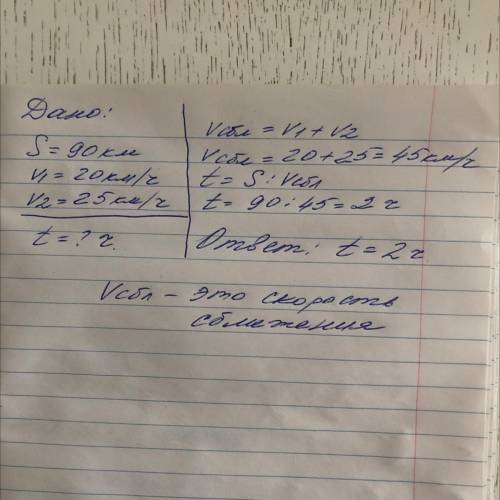 Дано:
S = 90 км
v1 = 20 км/ч
v2 = 25 км/ч
t = ? ч.
Vсбл = v1 + v2
Vсбл = 20 + 25 = 45 км/ч
t = S : Vсбл
t = 90 : 45 = 2 ч
Ответ: t = 2 ч
Vсбл – это скорость
сближения